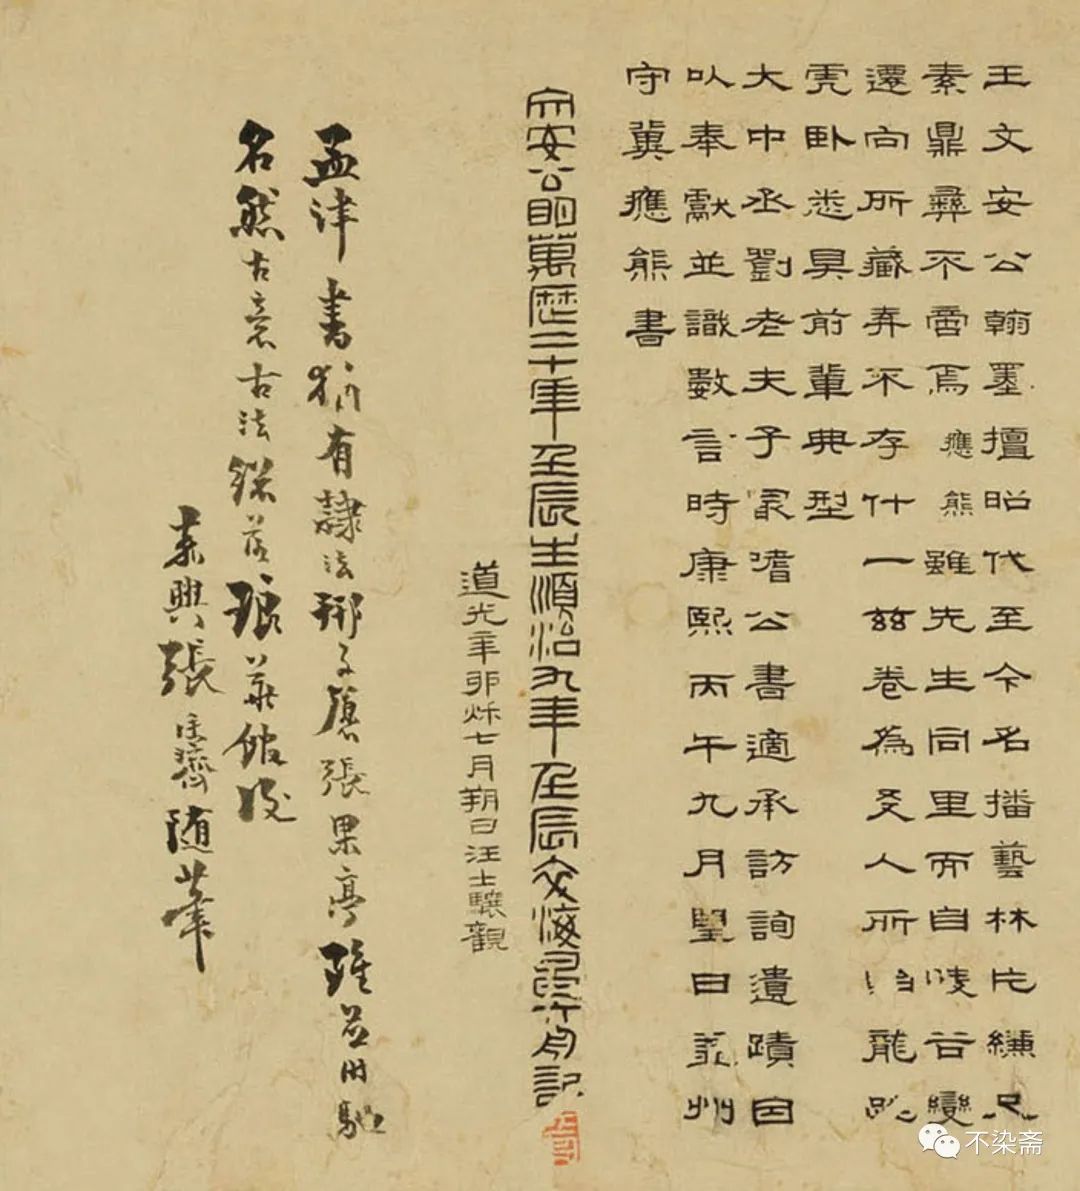 王文安公翰墨擅昭代至今名播藝林片縑尺
素鼎彝不啻焉應熊雖先生同里而自陵谷變
遷向所藏弆不存什一兹卷為友人所詒龍跳
虎卧悉具前輩典型
大中丞劉老夫子最嗜公書適承訪詢遺蹟因
以奉獻並識數言時康熙丙午九月望日益州
守冀應熊書
文安公明萬歷二十年壬辰生順治九年壬辰記
道光辛卯秋七月朔日汪士驤觀
孟津書猶有隸法邢子愿張果亭雖並時馳
名然古意古法總落琅華館後
嘉興張廷濟隨筆
不染斋